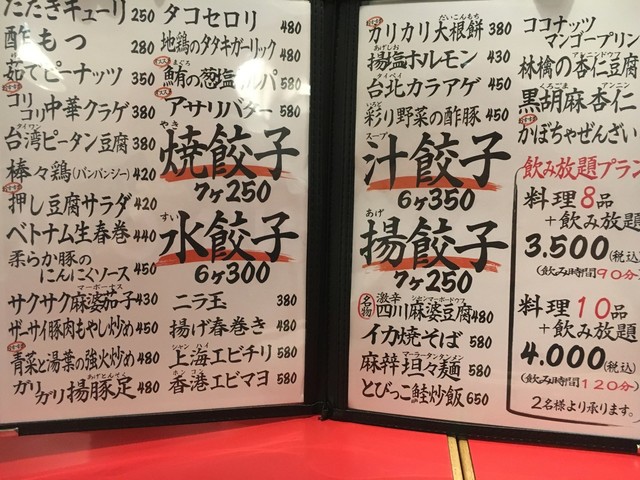 たたきキューリ 250
酢もつ 280
茹でピーナッツ 350
コリコリ中華クラゲ 380
台湾ピータン豆腐 380
棒々鶏(バンバンジー) 420
押し豆腐サラダ 420
ベトナム生春巻 440
柔らか豚のにんにくソース 450
サクサク麻婆茄子 430
ザーサイ豚肉もやし炒め 450
青菜と湯葉の強火炒め 480
ガリガリ揚豚定 480
タコセロリ 480
地鶏のタタキガーリック 480
鮪の葱塩ユッパ 580
アサリバター 580
焼餃子
7ヶ250
水餃子
6ヶ300
ニラ玉 380
揚げ春巻き 480
上海エビチリ 580
香港エビマヨ 580
カリカリ大根餅 380
揚塩ホルモン 430
台北カラアゲ 450
彩り野菜の酢豚 450
汁餃子
6ヶ350
揚餃子
7ヶ250
名物 激辛 四川麻婆豆腐 480
イカ焼そば 580
麻辣坦々麺 580
とびっこ鮭炒飯 650
ココナッツ
マンゴープリン
林檎の杏仁豆腐
黒胡麻杏仁
かぼちゃぜんざい
飲み放題プラン
料理8品
+飲み放題
3.500(税込)
(飲み時間90分)
料理10品
+飲み放題
4.000(税込)
(飲み時間120分)
2名様より承ります。